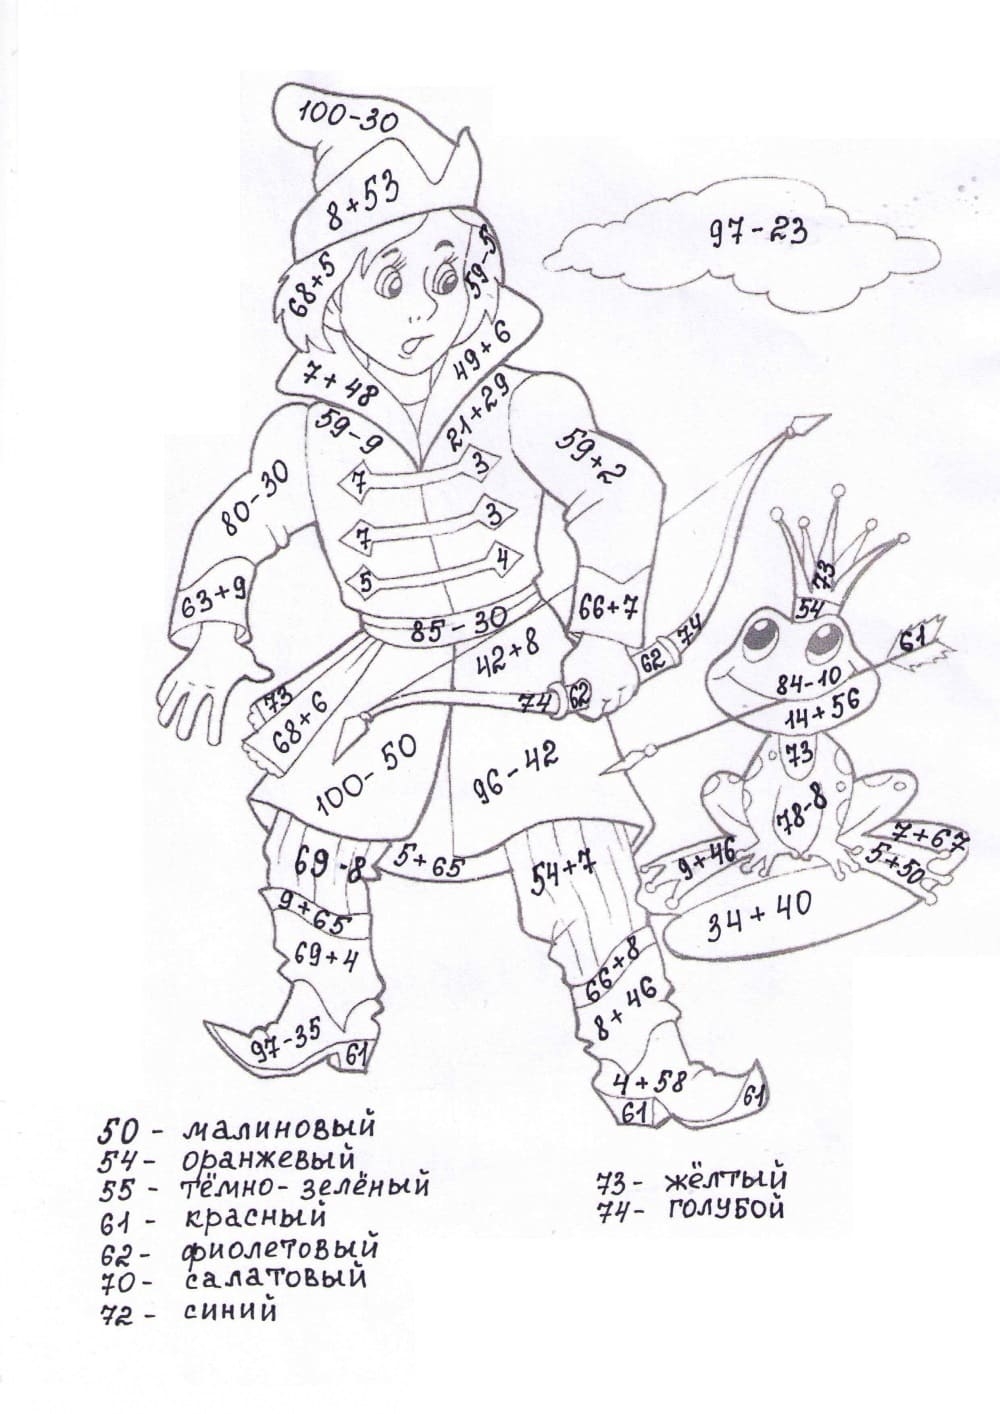 100-30
8+53
97-23
68+5
59-5
7+48
49+6
59-9
21+29
7
3
59+2
80-30
7
3
5
4
63+9
66+7
73
54
85-30
42+8
62
74
61
84-10
73
68+6
74
62
14+56
100-50
96-42
73
78-8
69-8
5+65
54+7
9+46
7+67
5+50
9+65
34+40
69+4
66+8
8+46
97-35
61
4+58
61
61
50 - малиновый
54 - оранжевый
55 - тёмно-зелёный
61 - красный
62 - фиолетовый
70 - салатовый
72 - синий
73 - жёлтый
74 - голубой